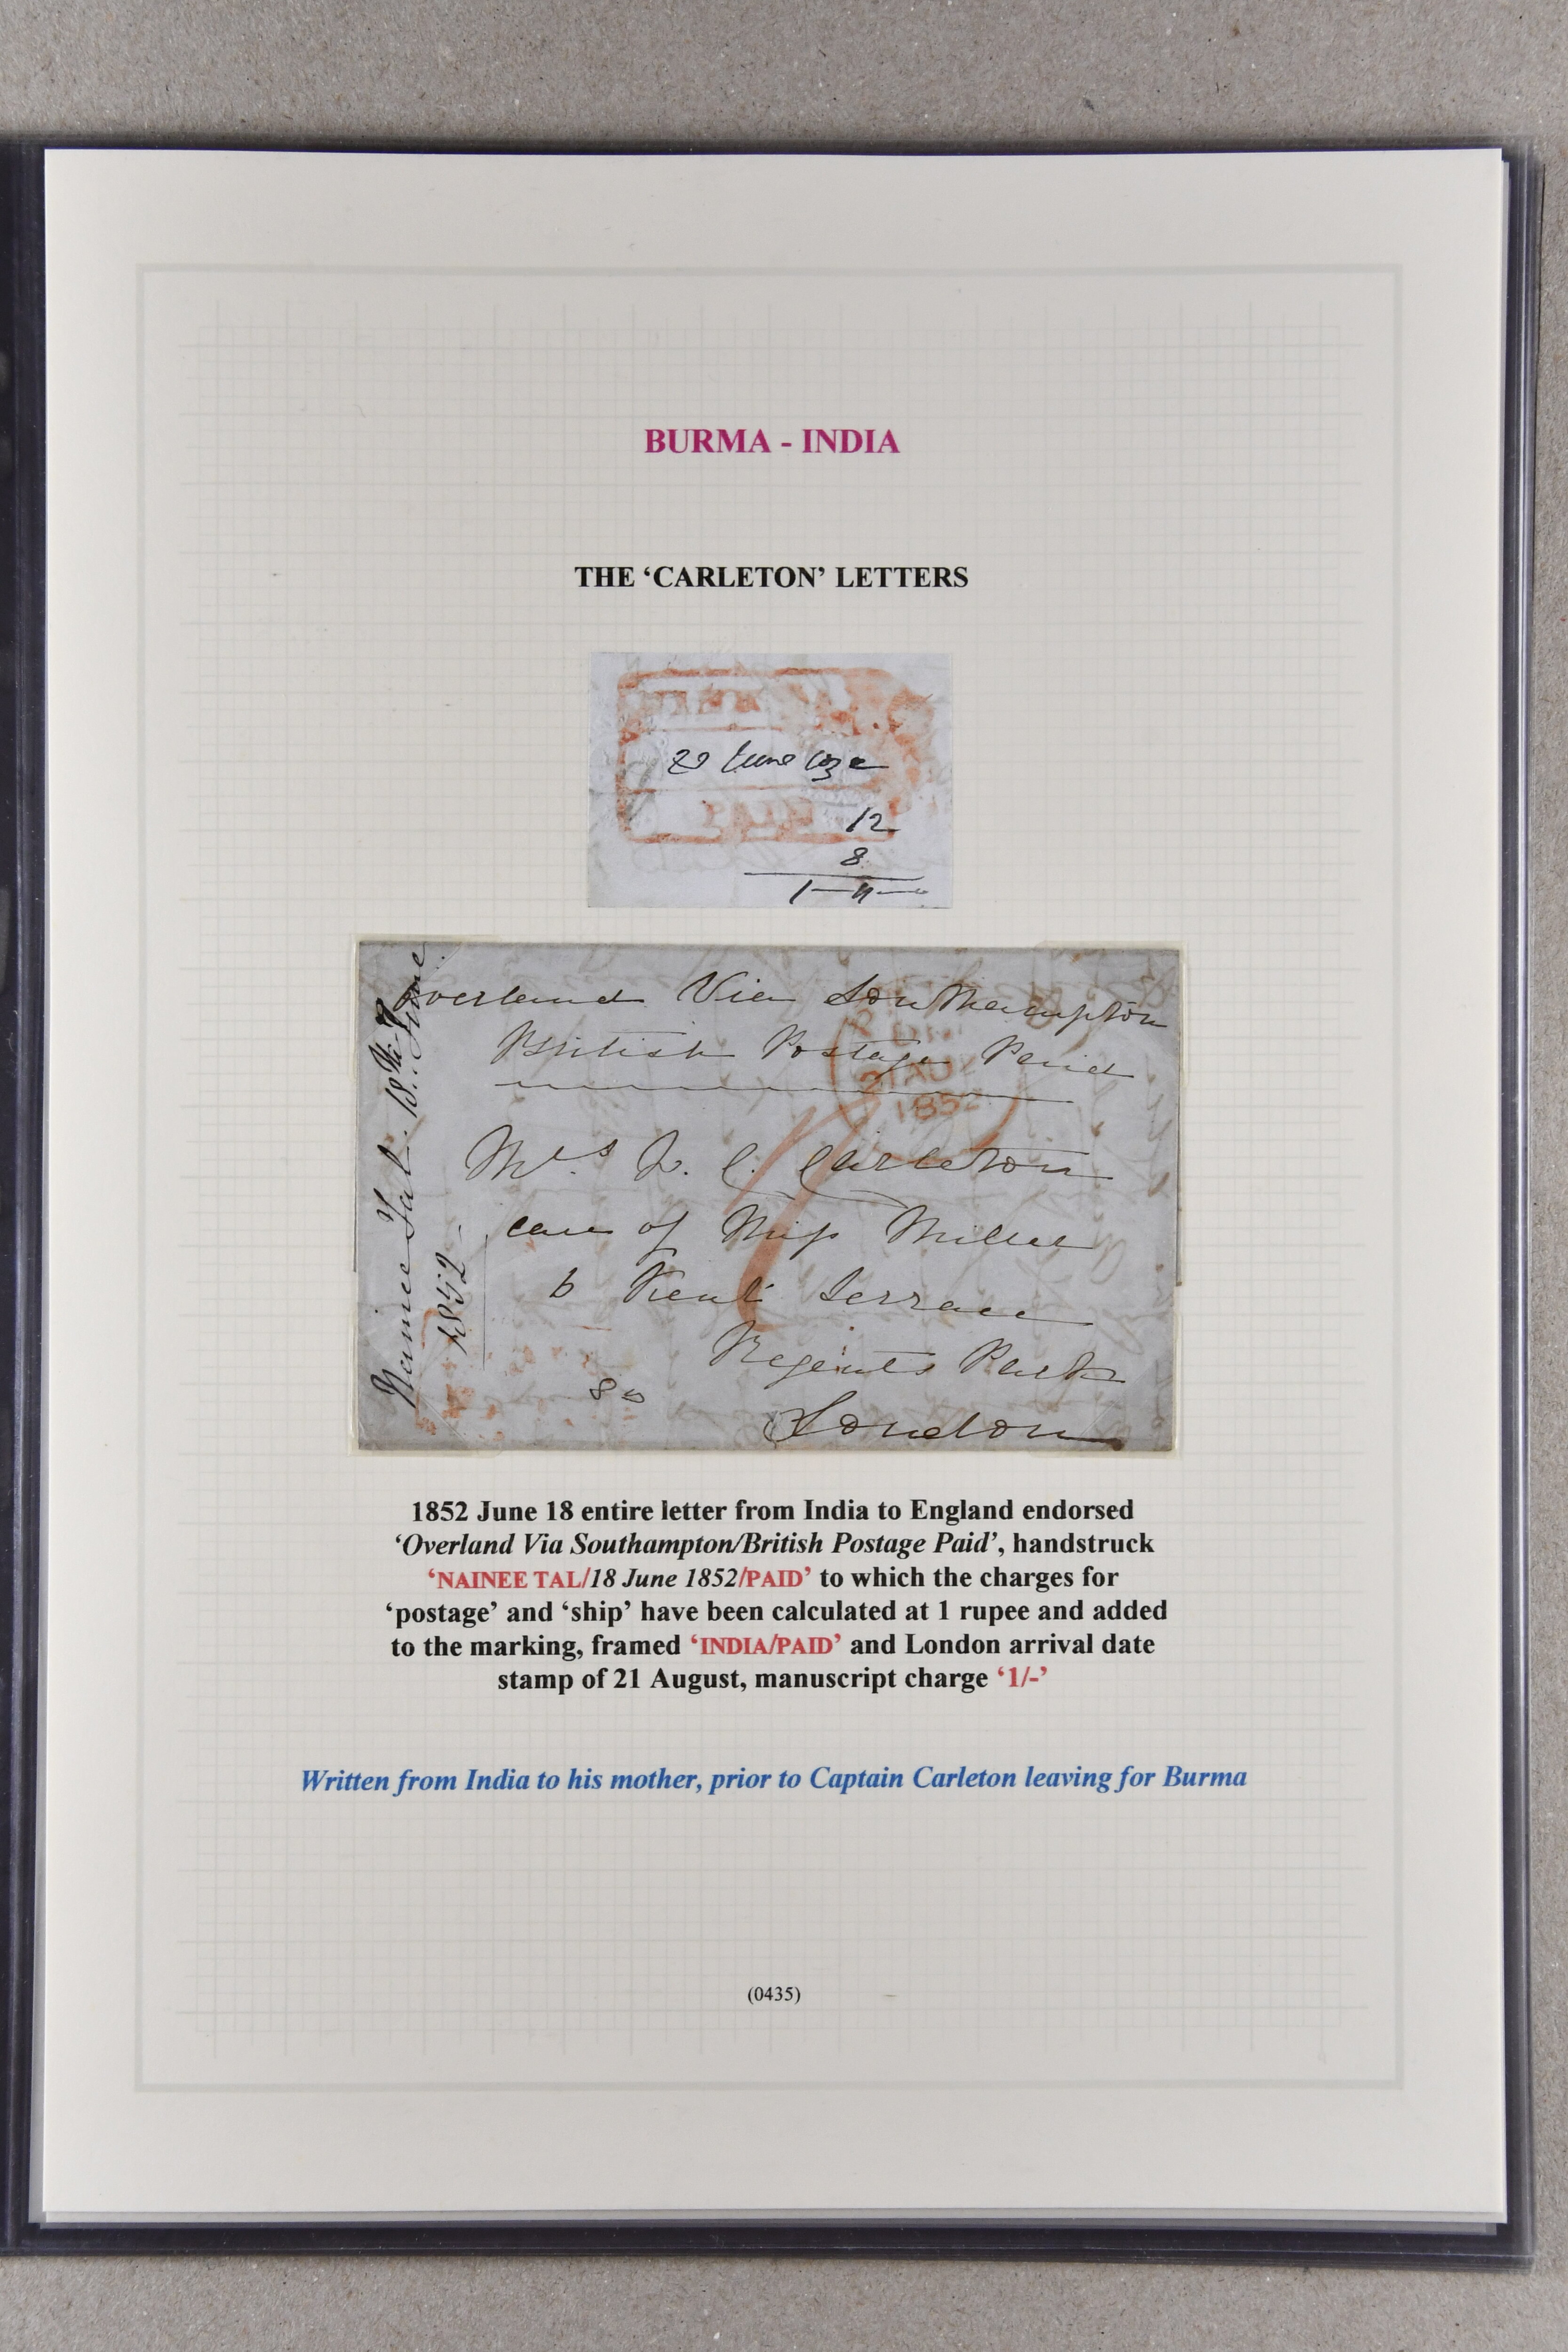 BURMA - INDIA
THE ‘CARLETON’ LETTERS
20 June 1852
12
8
1-4-
Overland Via Southampton
British Postage Paid
21 AU
1852
Mrs. L. C. Carleton
care of Miss Miller
6 Kent Terrace
Regents Park
London
80
Nainee Tal. 18th June
1852
1852 June 18 entire letter from India to England endorsed
‘Overland Via Southampton/British Postage Paid’, handstruck
‘NAINEE TAL/18 June 1852/PAID’ to which the charges for
‘postage’ and ‘ship’ have been calculated at 1 rupee and added
to the marking, framed ‘INDIA/PAID’ and London arrival date
stamp of 21 August, manuscript charge ‘1/-’
Written from India to his mother, prior to Captain Carleton leaving for Burma
(0435)